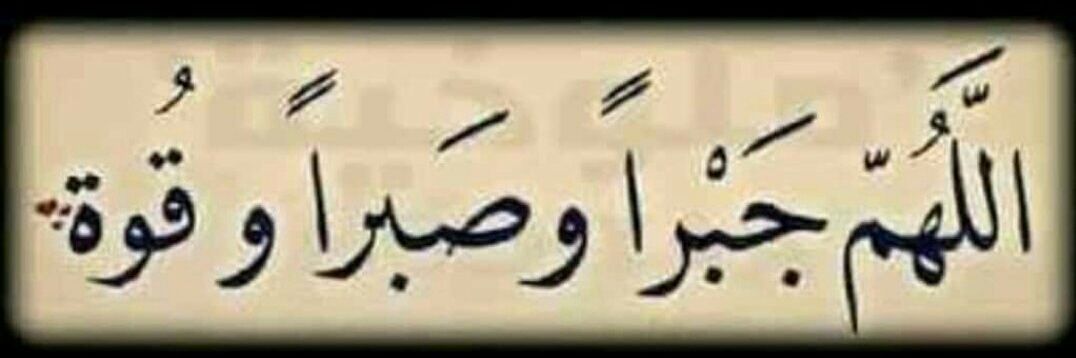 اللَّهُمّ جَبْراً وصَبراً و قُوة